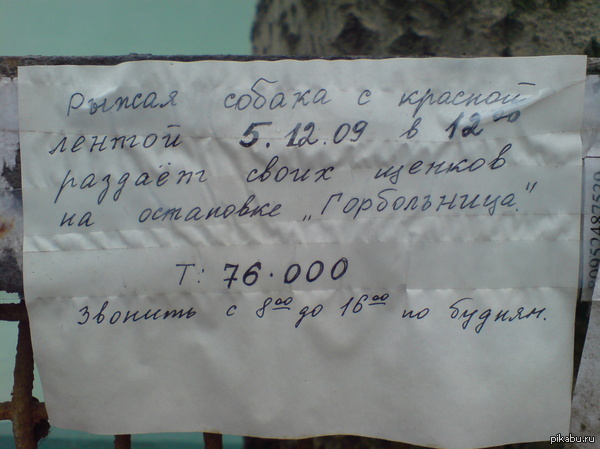 Рыжая собака с красной
лентой 5.12.09 в 12⁰⁰
раздаёт своих щенков
на остановке „Горбольница."
Т: 76·000
Звонить с 8⁰⁰ до 16⁰⁰ по будням.
89952487520
pikabu.ru